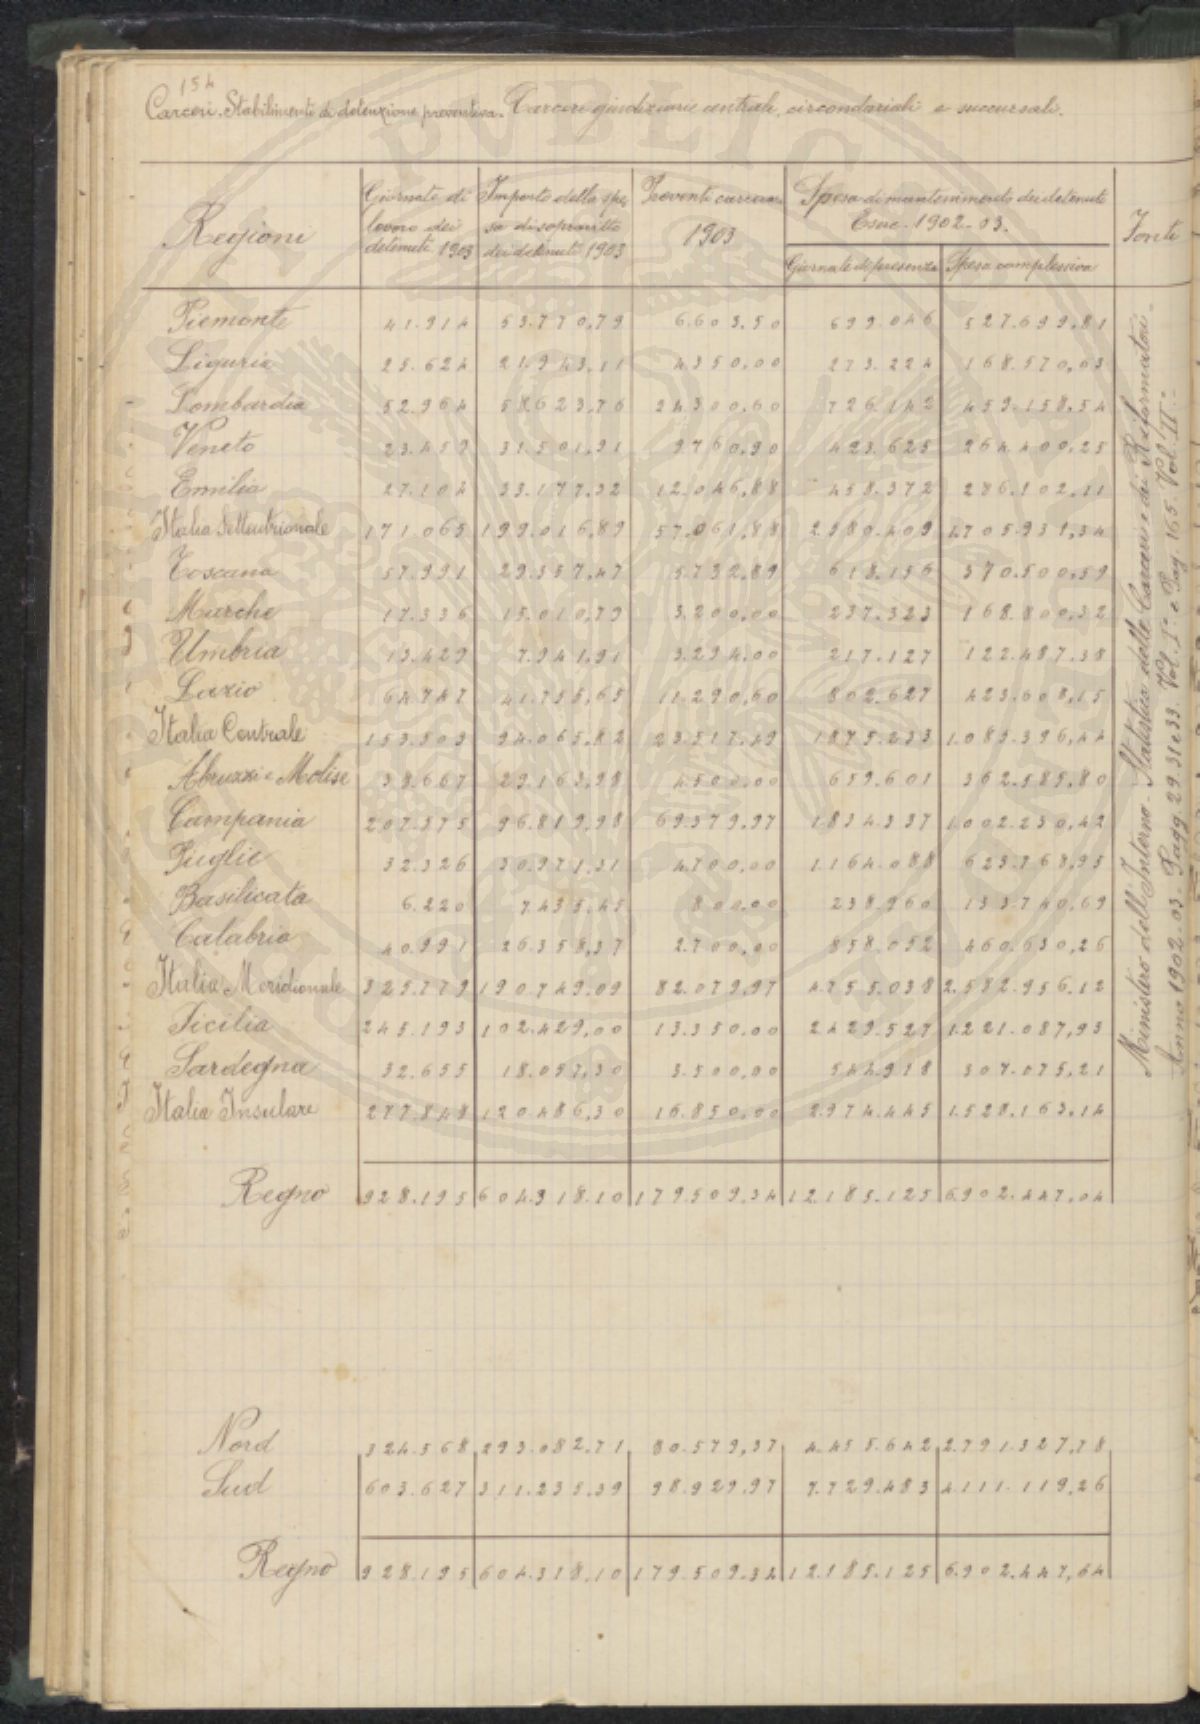 154
Carceri. Stabilimenti di detenzione preventiva. Carceri giudiziarie centrali, circondariali e succursali.
Regioni | Giornate di lavoro dei detenuti 1903 | Importo della spesa di sopravitto dei detenuti 1903 | Proventi carcerari 1903 | Spesa di mantenimento dei detenuti Eserc. 1902-03. | Fonti
Giornate di presenza | Spesa complessiva
Piemonte 41.914 53.770,79 6.603.50 699.046 527.699,81
Liguria 25.624 21.943,11 4350,00 273.224 168.570,03
Lombardia 52.964 58623,76 24300,60 726.142 459.158,54
Veneto 23.459 31.501,91 9760,90 423.625 264.400,25
Emilia 27.104 33.177,32 12.046,88 458.372 286.102,11
Italia Settentrionale 171.065 199.016,89 57.061,88 2.580.409 1.705.931,34
Toscana 57.991 29.357,47 5.732,89 618.156 370.500,59
Marche 17.336 15.010,79 3.200,00 237.323 168.800,32
Umbria 13.429 7.941,91 3.294,00 217.127 122.487,38
Lazio 64.747 41.755,65 11.290,60 802.627 423.608,15
Italia Centrale 153.503 94.065,82 23.517,49 1875.233 1.085.396,44
Abruzzi e Molise 38.667 29.163,98 4500,00 659.601 362.585,80
Campania 207.575 96.819,98 69.379,97 1.834.337 1.002.230,42
Puglie 32.326 30.971,31 4700,00 1.164.088 623.768,95
Basilicata 6.220 7.435,45 800,00 238.960 133740,69
Calabria 40.991 26.358,37 2.700,00 858.052 460.630,26
Italia Meridionale 325.779 190.749,09 82.079,97 4.755.038 2.582.956,12
Sicilia 245.193 102.429,00 13.350,00 2.429.527 1.221.087,93
Sardegna 32.655 18.057,30 3.500,00 544.918 307.075,21
Italia Insulare 277.848 120.486,30 16.850,00 2.974.445 1.528.163,14
Regno 928.195 604.318.10 179.509,34 12.185.125 6.902.447,04
Nord 324.568 293.082,71 80.579,37 4.455.642 2.791.327,78
Sud 603.627 311.235,39 98.929,97 7.729.483 4.111.119,26
Regno 928.195 604.318,10 179.509.34 12.185.125 6.902.447,04
Ministero dell'Interno - Statistica delle Carceri e dei Riformatori -
Anno 1902-03 - Pagg. 29.31 e 33. Vol. I° e Pag. 165. Vol. II -